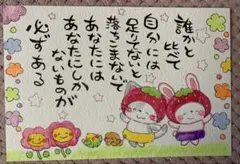 誰かと比べて
自分には
足りてないと
落ちこまないで
あなたには
あなたにしか
ないものが
必ずある